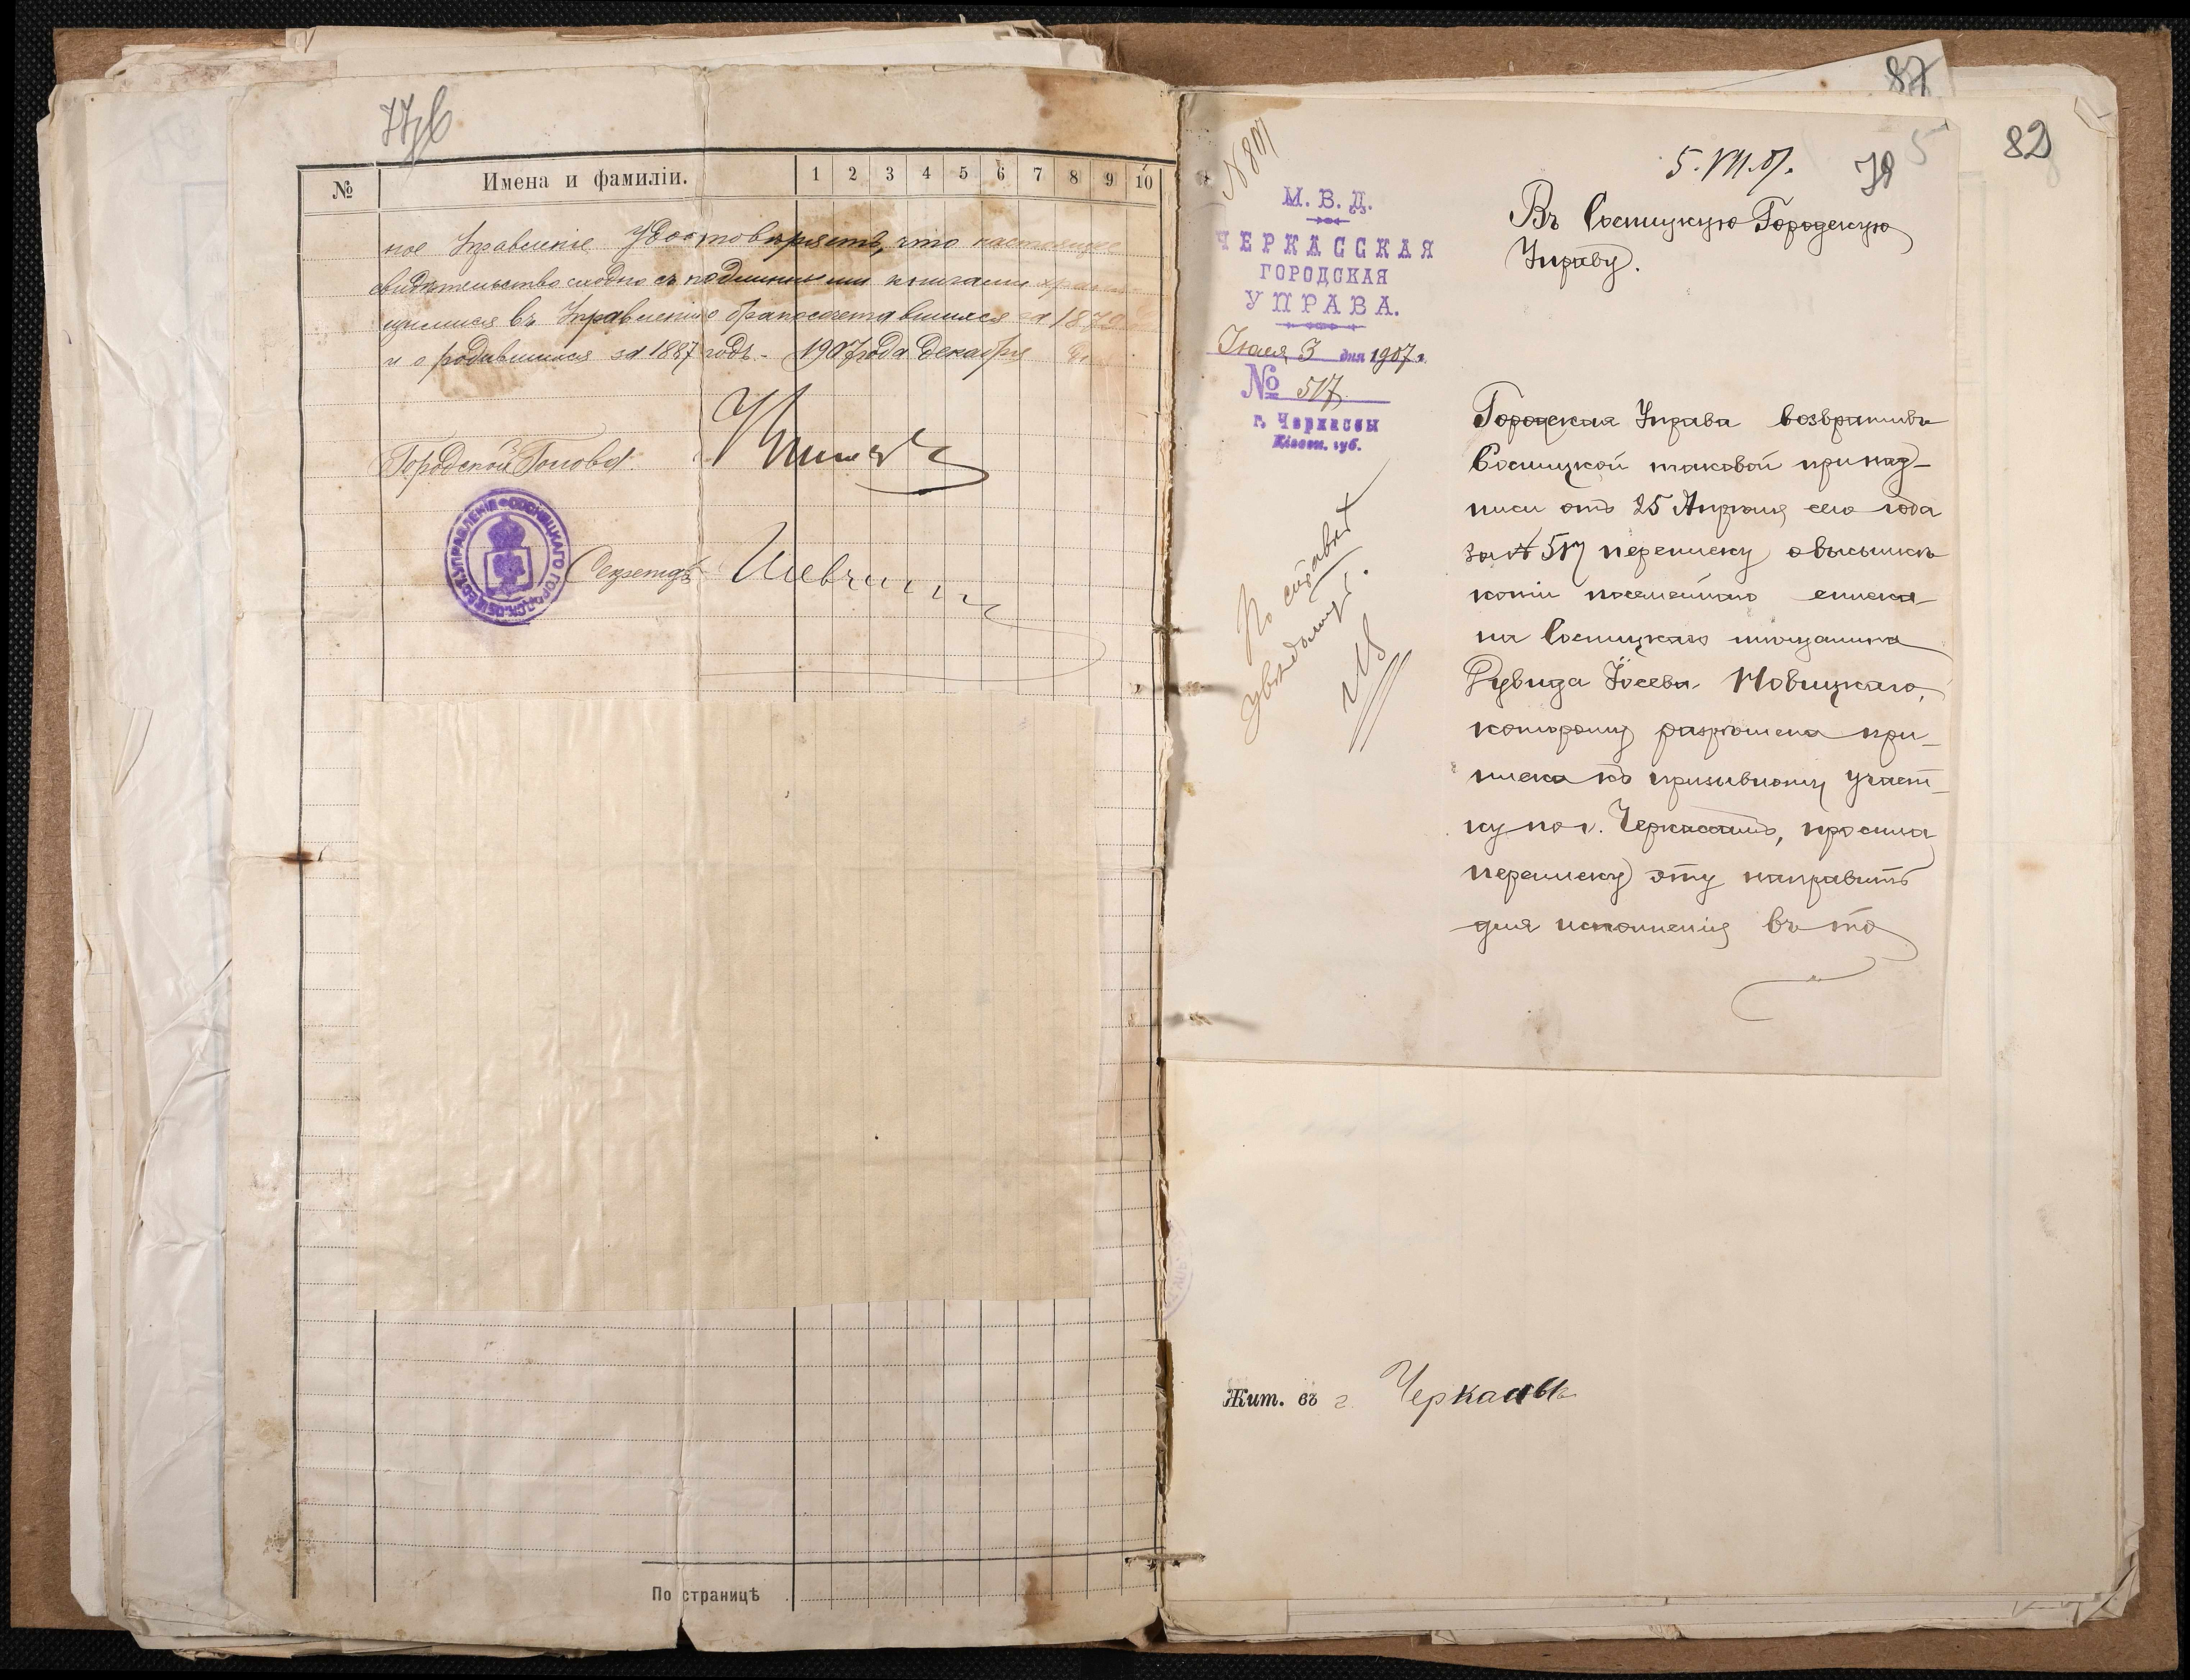 77об
№ Имена и фамиліи. 1 2 3 4 5 6 7 8 9 10
ное Управленіе удостовѣряетъ, что настоящее
свидѣтельство сходно съ подлинными книгами храня-
щимися въ Управленіи о бракосочетавшихся за 187
и о родившихся за 1887 годъ. 1907 года Декабря
Городской Голова
СОСНИЦКАГО ГОРОДСК. ОБЩЕСТ. УПРАВЛЕНІЯ
Секретарь
По страницѣ
87
82
5
78
5.VII.07.
М. В. Д.
ЧЕРКАССКАЯ
ГОРОДСКАЯ
УПРАВА.
Іюля 3 дня 1907 г.
№ 517
г. Черкассы
Кіевск. губ.
По справкѣ
увѣдомить.
Въ Сосницкую Городскую
Управу.
Городская Управа возвративъ
Сосницкой таковой при над-
писи отъ 25 Апрѣля сего года
за № 517 переписку о высылкѣ
копіи посемейнаго списка
на Сосницкаго мѣщанина
Рувида Іосева Новицкаго,
которому разрѣшена при-
писка къ призывному участ-
ку по г. Черкассамъ, просила
переписку эту направить
для исполненія въ то
Жит. въ г. Черкассы